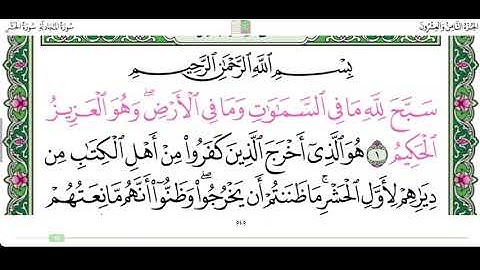 الجزء الثامن والعشرون
سورة المجادلة سورة الحشر
بِسْمِ ٱللَّهِ ٱلرَّحْمَٰنِ ٱلرَّحِيمِ
سَبَّحَ لِلَّهِ مَا فِي ٱلسَّمَٰوَٰتِ وَمَا فِي ٱلْأَرْضِۖ وَهُوَ ٱلْعَزِيزُ
ٱلْحَكِيمُ ١ هُوَ ٱلَّذِيٓ أَخْرَجَ ٱلَّذِينَ كَفَرُوا۟ مِنْ أَهْلِ ٱلْكِتَٰبِ مِن
دِيَٰرِهِمْ لِأَوَّلِ ٱلْحَشْرِۚ مَا ظَنَنتُمْ أَن يَخْرُجُوا۟ۖ وَظَنُّوٓا۟ أَنَّهُم مَّانِعَتُهُمْ
٥٤٥